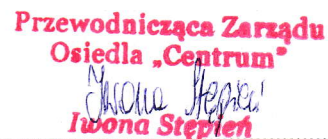 Przewodnicząca Zarządu
Osiedla „Centrum"
Iwona Stępień
Iwona Stępień